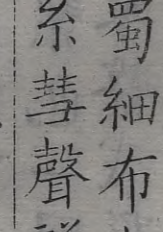 蜀細布
糸彗聲